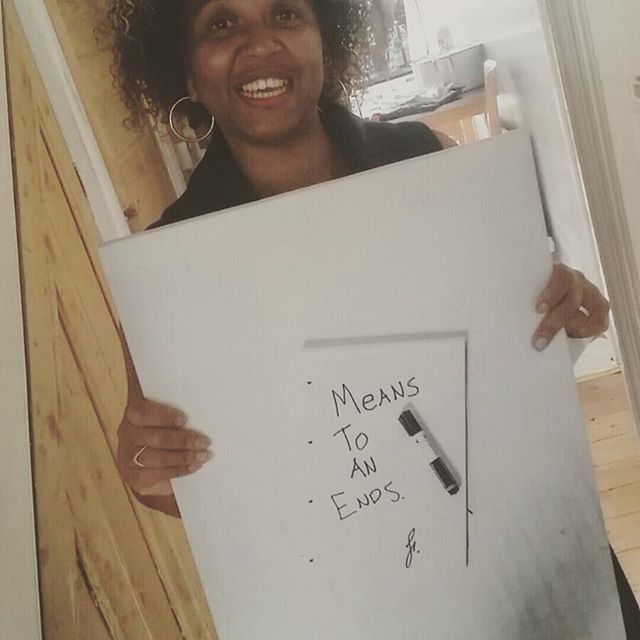 Means
To
AN
ENDS.